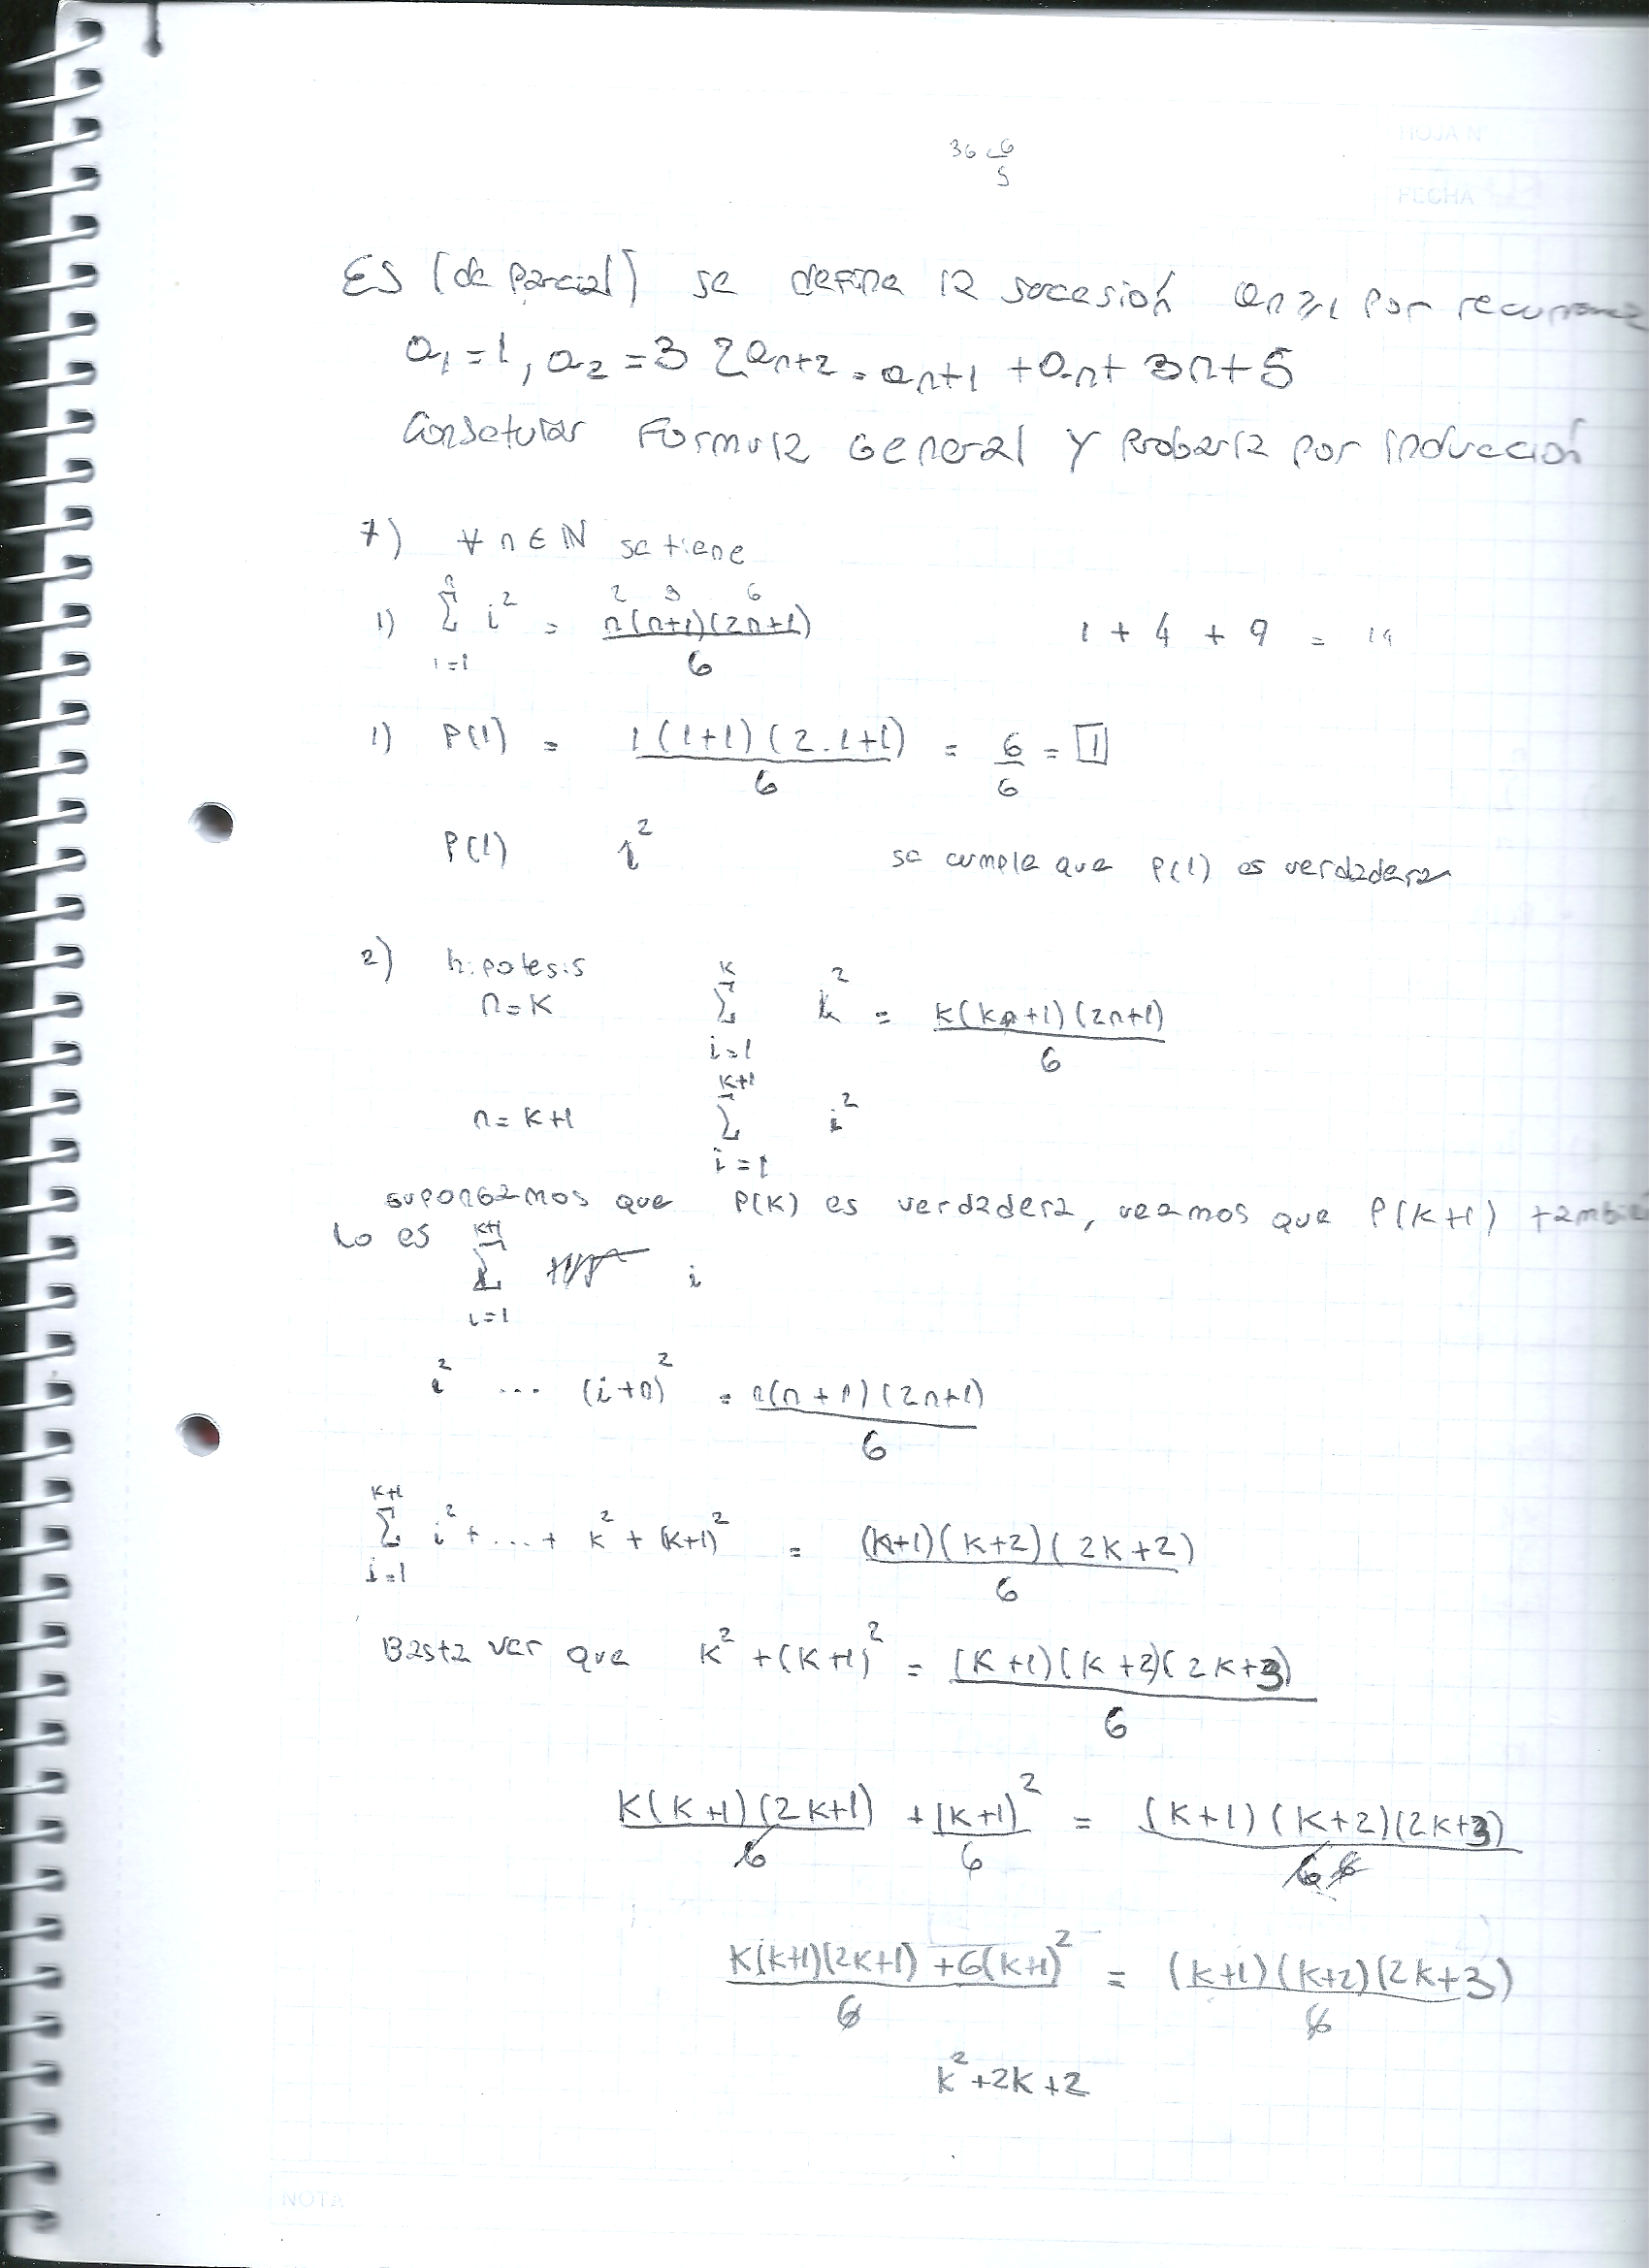 36 6
5
HOJA N°
FECHA
ES (de parcial) se define la sucesión an≥1 por recurrencia
a1 = 1, a2 = 3 2an+2 = an+1 + an + 3n + 5
Formula General y Probarla por inducción
7) ∀ n ∈ ℕ se tiene
2 3 6
1) n∑i=1 i² = n(n+1)(2n+1)/6 1 + 4 + 9 = 14
1) P(1) = 1(1+1)(2.1+1)/6 = 6/6 = 1
P(1) 1² se cumple que P(1) es verdadera
2) hipotesis
n=K K∑i=1 k² = K(Kn+1)(2n+1)/6
n = K+1 K+1∑i=1 i²
supongamos que P(K) es verdadera, veamos que P(K+1) tambié
lo es K+1∑i=1 i
i² ... (i+n)² = n(n+1)(2n+1)/6
K+1∑i=1 i² + ... + K² + (K+1)² = (K+1)(K+2)(2K+2)/6
Basta ver que K² + (K+1)² = (K+1)(K+2)(2K+3)/6
K(K+1)(2K+1)/6 + (K+1)²/6 = (K+1)(K+2)(2K+3)/6
K(K+1)(2K+1) + 6(K+1)²/6 = (K+1)(K+2)(2K+3)/6
K² + 2K + 2
NOTA